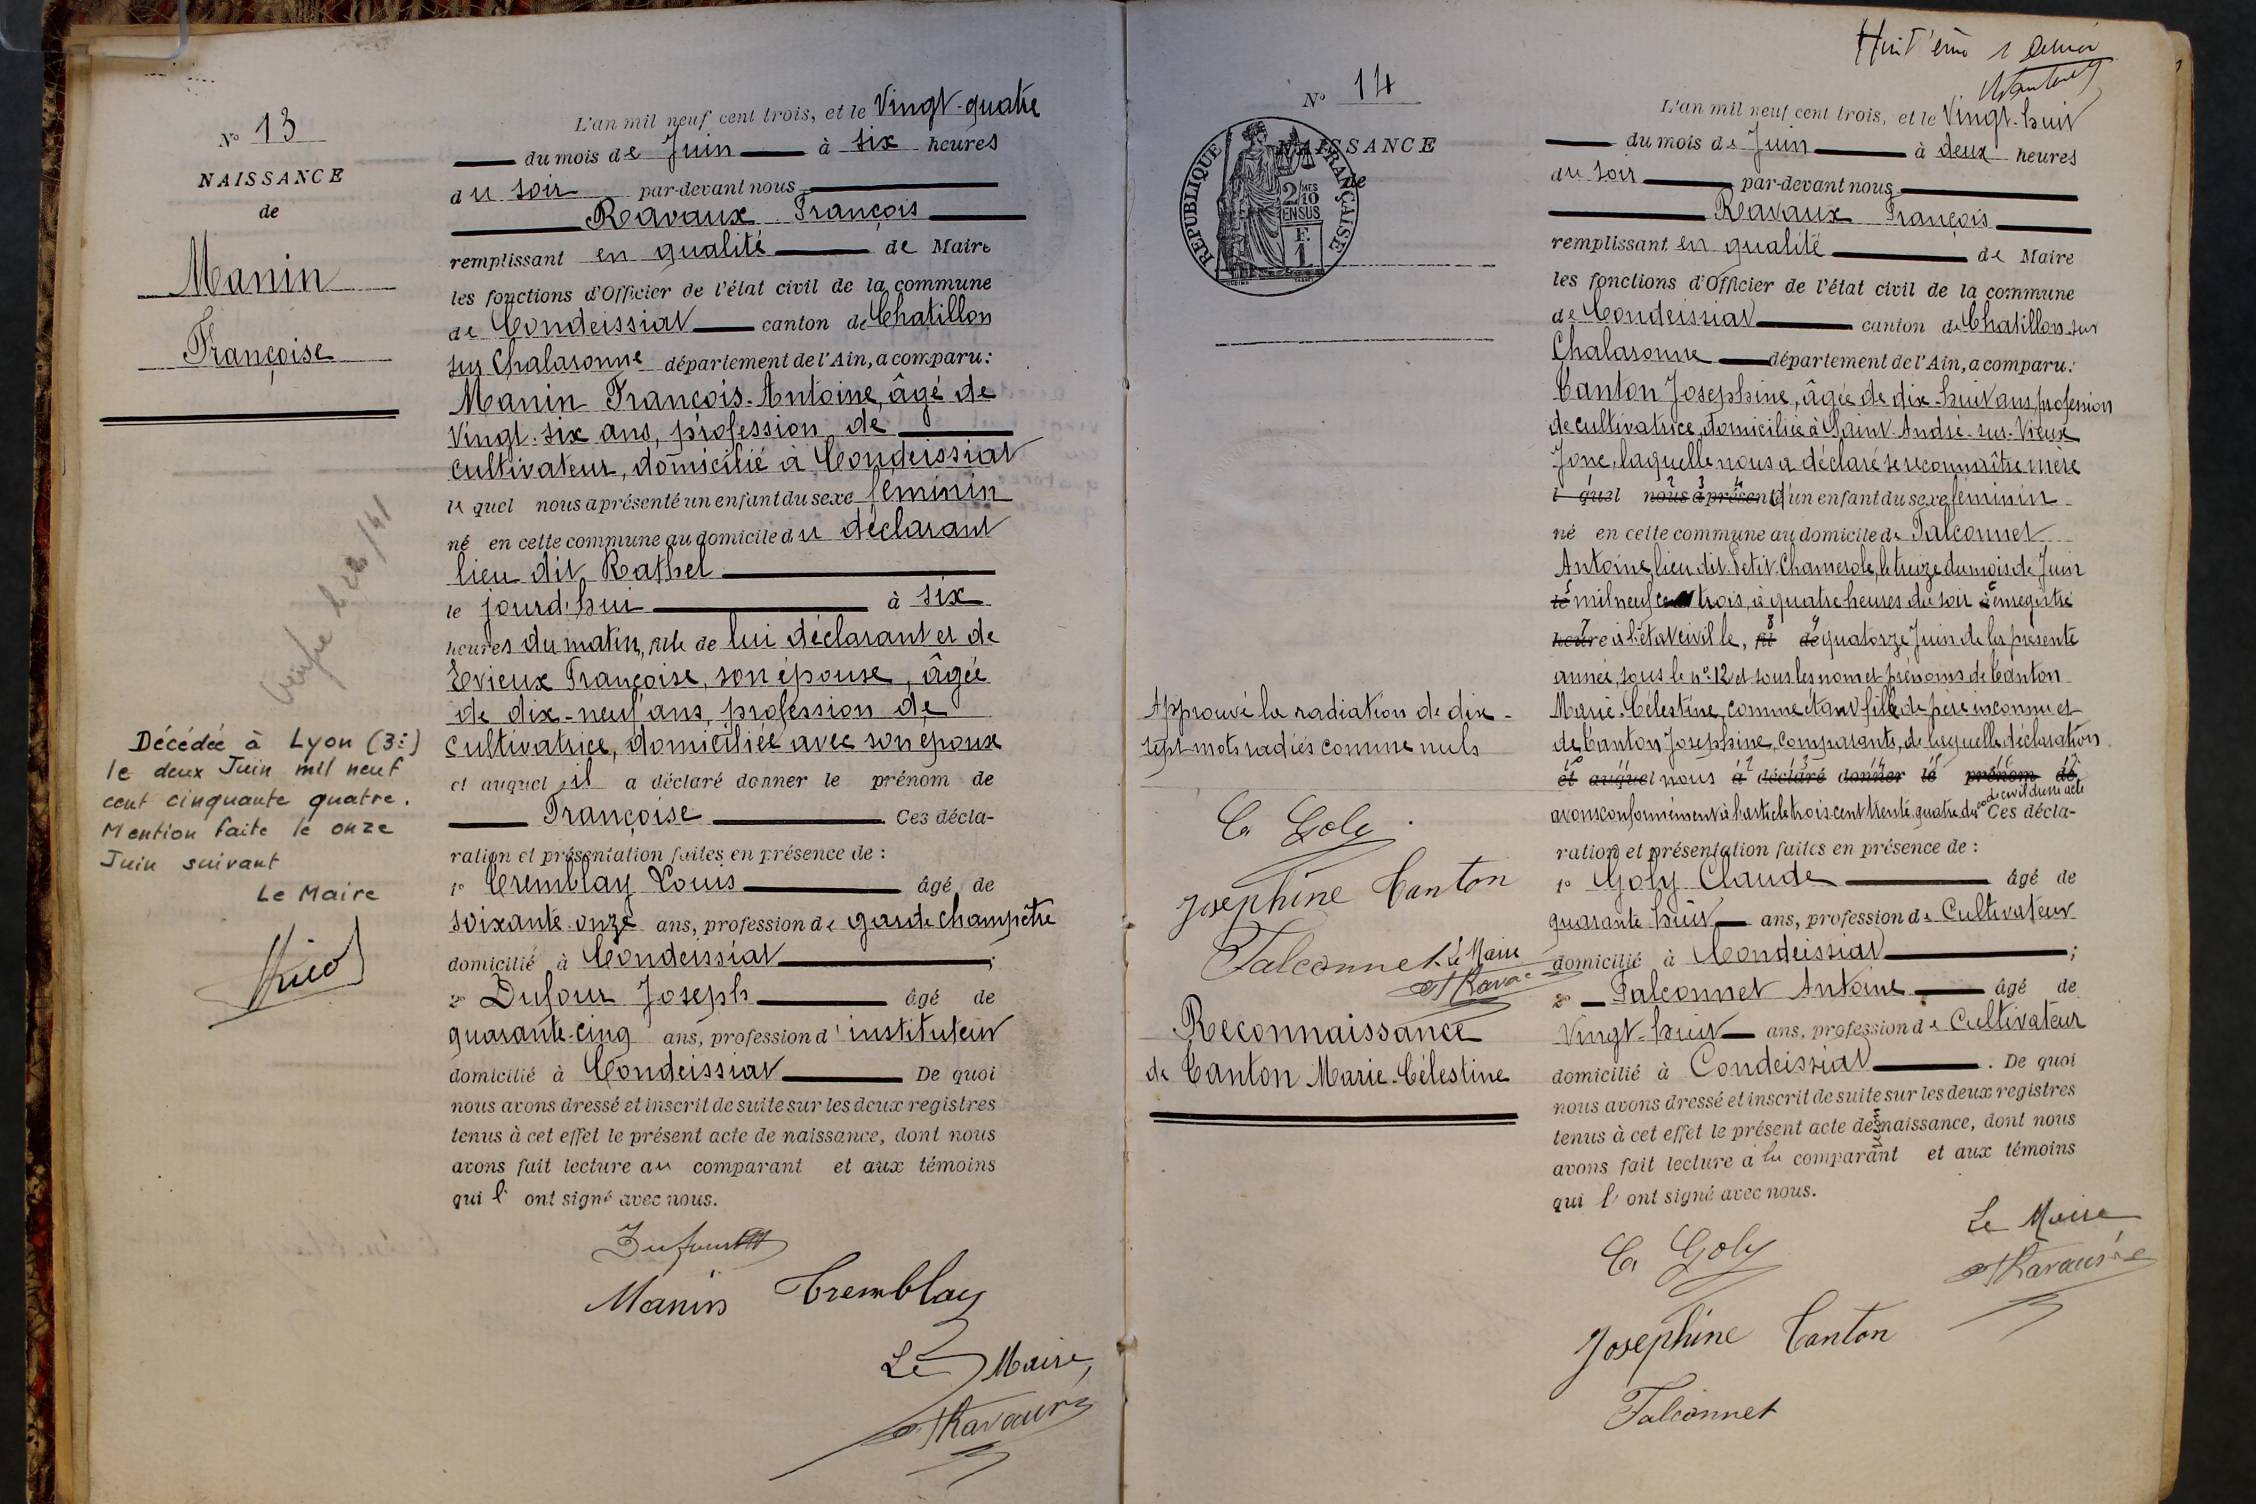 N° 13
NAISSANCE
de
Manin
Françoise
Décédée à Lyon (3e)
le deux Juin mil neuf
cent cinquante quatre.
Mention faite le onze
Juin suivant
Le Maire
L'an mil neuf cent trois, et le Vingt-quatre
du mois de Juin à six heures
du soir par-devant nous
Ravaux François
remplissant en qualité de Maire
les fonctions d'Officier de l'état civil de la commune
de Condeissiat canton de Chatillon
sur Chalaronne département de l'Ain, a comparu:
Manin François-Antoine, âgé de
Vingt-six ans, profession de
cultivateur, domicilié à Condeissiat
le quel nous a présenté un enfant du sexe féminin
né en cette commune au domicile du déclarant
lieu dit Rathel
le jourd'hui à six
heures du matin, fille de lui déclarant et de
Evieux Françoise, son épouse, âgée
de dix-neuf ans, profession de
cultivatrice, domiciliée avec son époux
et auquel il a déclaré donner le prénom de
Françoise Ces décla-
ration et présentation faites en présence de :
1° Tremblay Louis âgé de
soixante-onze ans, profession de garde champêtre
domicilié à Condeissiat ;
2° Dufour Joseph âgé de
quarante-cinq ans, profession d'instituteur
domicilié à Condeissiat De quoi
nous avons dressé et inscrit de suite sur les deux registres
tenus à cet effet le présent acte de naissance, dont nous
avons fait lecture au comparant et aux témoins
qui l'ont signé avec nous.
Dufour
Manin Tremblay
Le Maire,
Ravaux
N° 14
NAISSANCE
de
RÉPUBLIQUE FRANÇAISE
2/10 MES
EN SUS
F.
1
Approuvé la radiation de dix-
sept mots radiés comme nuls
C. Goly
Josephine Canton
Falconnet Le Maire
Ravaux
Reconnaissance
de Canton Marie-Célestine
L'an mil neuf cent trois, et le Vingt-huit
du mois de Juin à deux heures
du soir par-devant nous
Ravaux François
remplissant en qualité de Maire
les fonctions d'Officier de l'état civil de la commune
de Condeissiat canton de Chatillon-sur
Chalaronne département de l'Ain, a comparu:
Canton Josephine, âgée de dix-huit ans, profession
de cultivatrice, domiciliée à Saint-André-sur-Vieux
Jonc, laquelle nous a déclaré se reconnaître mère
l quel nous a présenté d'un enfant du sexe féminin
né en cette commune au domicile de Falconnet
Antoine, lieu dit Petit-Chamerole, le treize du mois de Juin
le mil neuf cent trois, à quatre heures du soir à enregistré
heure à l'état civil le, fil de quatorze Juin de la présente
année, sous le n° 12 et sous les nom et prénoms de Canton
Marie-Célestine, comme étant fille de père inconnu et
de Canton Josephine, comparante, de laquelle déclaration
et auquel nous a déclaré donner le prénom de
avons conformément à l'article trois cent trente quatre du code civil dressé acte Ces décla-
ration et présentation faites en présence de :
1° Goly Claude âgé de
quarante huit ans, profession de Cultivateur
domicilié à Condeissiat ;
2° Falconnet Antoine âgé de
Vingt-huit ans, profession de Cultivateur
domicilié à Condeissiat . De quoi
nous avons dressé et inscrit de suite sur les deux registres
tenus à cet effet le présent acte de naissance, dont nous
avons fait lecture à la comparant et aux témoins
qui l'ont signé avec nous.
C. Goly
Le Maire
Ravaux
Josephine Canton
Falconnet